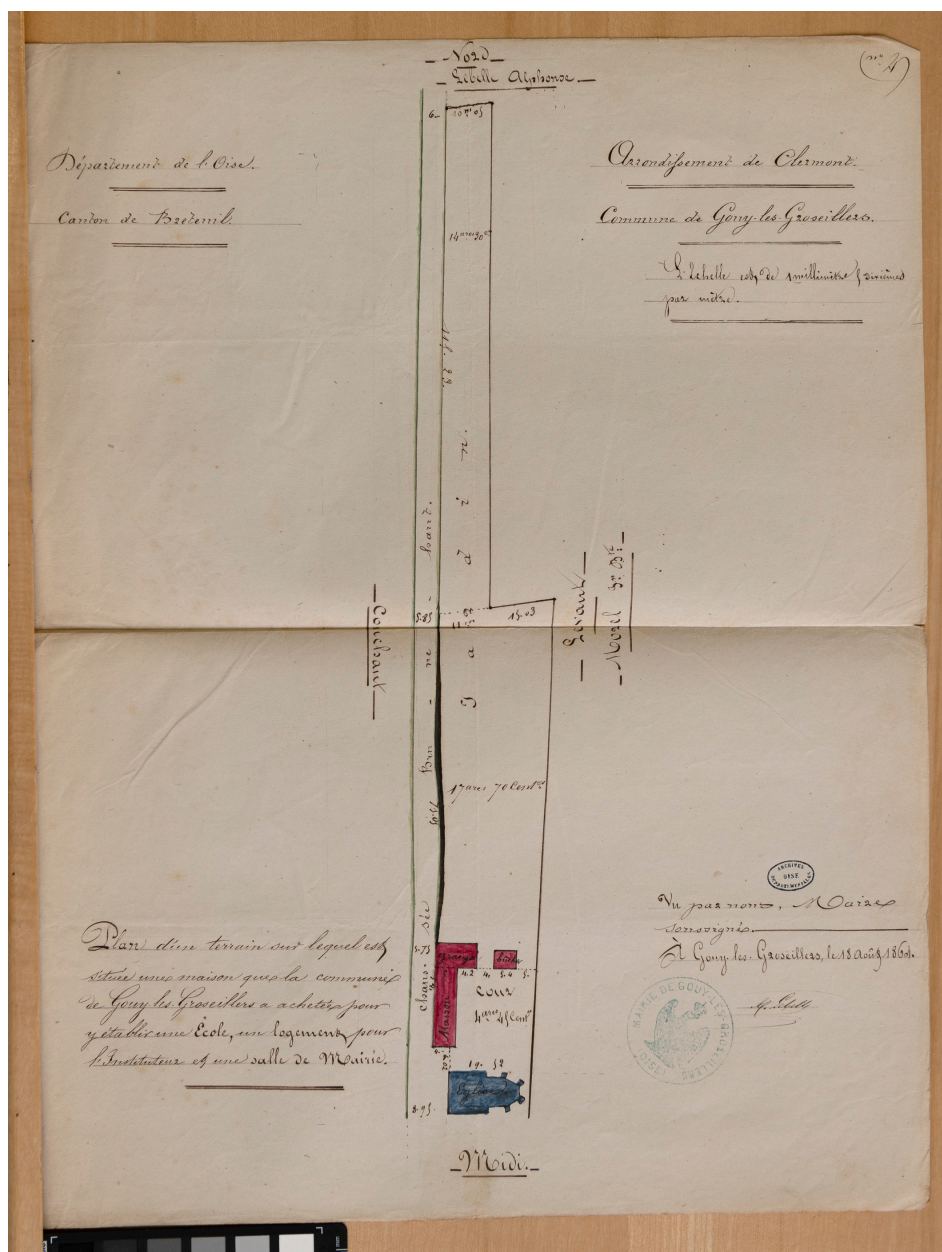 Nord
Lebelle Alphonse
(nº 4)
Département de l'Oise.
Canton de Breteuil.
Arrondissement de Clermont.
Commune de Gouy-les-Groseillers.
L'Echelle est de 1 millimètre
par mètre.
6
10m 05
14 ares 30c
Jardin
15.03
5.85
Couchant
Levant
Morel
17 ares 70 Cent.
Brunehaut.
chaussée
5.75
Grange
bucher
4.2
4.
5.4
5.
Maison
Cour
4 ares 45 Cent
19. 52
Eglise
8.95
Midi.
Plan d'un terrain sur lequel est
située une maison que la commune
de Gouy les Groseillers a acheter pour
y établir une École, un logement pour
l'Instituteur et une salle de Mairie.
ARCHIVES
OISE
DEPARTEMENTALES
Vu par nous, Maire
soussigné.
À Gouy-les-Groseillers, le 18 Août 186
A. Lebelle
MAIRIE DE GOUY-LES-GROSEILLERS
(OISE)